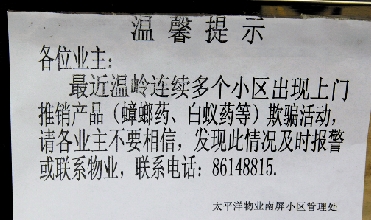 温馨提示
各位业主：
最近温岭连续多个小区出现上门
推销产品（蟑螂药、白蚁药等）欺骗活动，
请各业主不要相信，发现此情况及时报警
或联系物业，联系电话：86148815.
太平洋物业南屏小区管理处